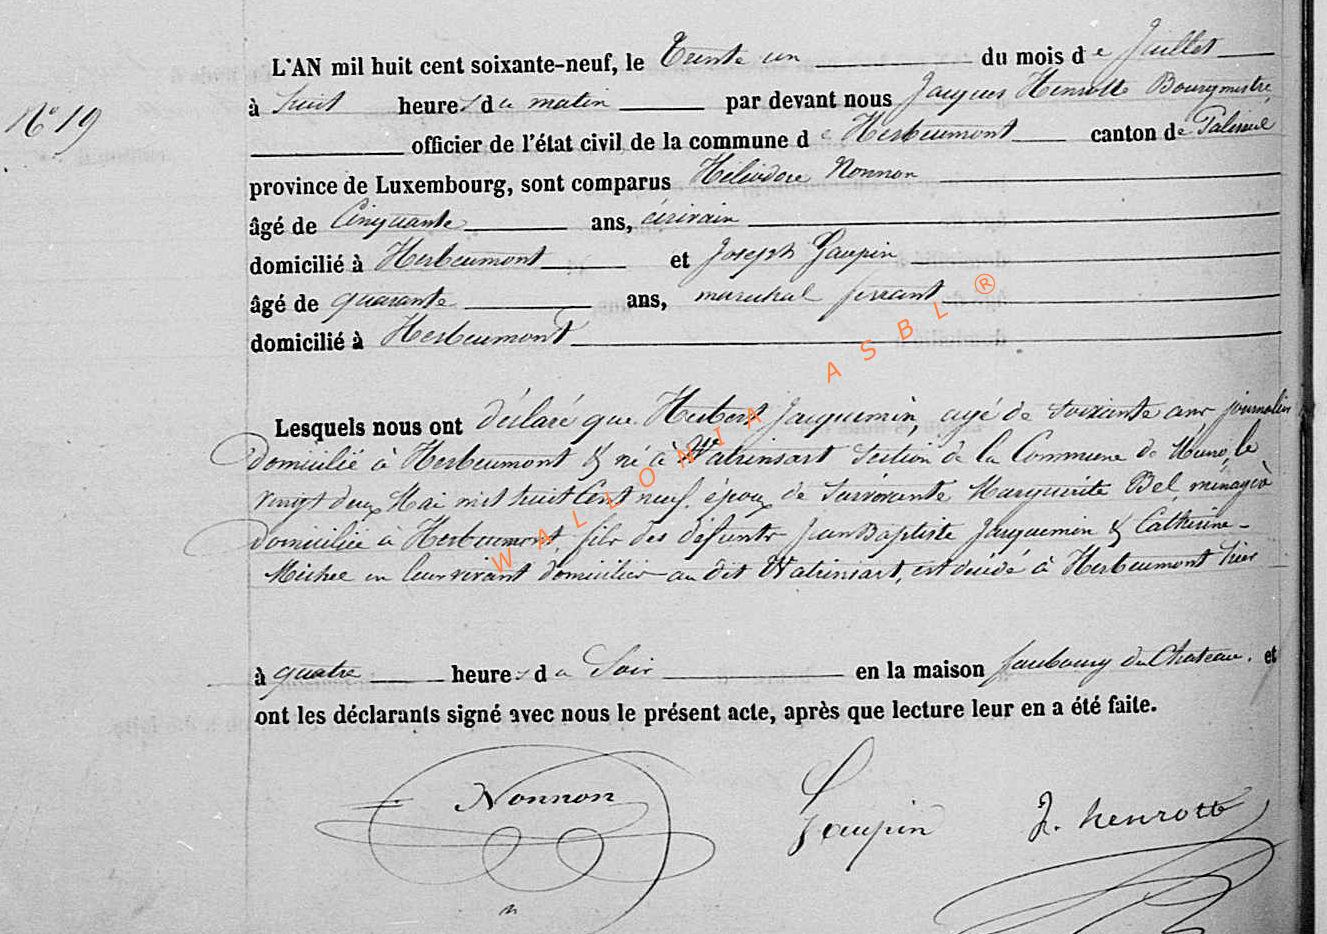 N° 19
L'AN mil huit cent soixante-neuf, le Trente un du mois de Juillet
à huit heures du matin par devant nous Jacques Henrotte Bourgmestre
officier de l'état civil de la commune de Herbeumont canton de Paliseul
province de Luxembourg, sont comparus Héliodore Nonnon
âgé de Cinquante ans, écrivain
domicilié à Herbeumont et Joseph Gaupin
âgé de quarante ans, marechal ferrant
domicilié à Herbeumont
Lesquels nous ont déclaré que Hubert Jacquemin, agé de soixante ans journalier
domicilié à Herbeumont & né à Watrinsart Section de la Commune de Muno, le
vingt deux Mai mil huit Cent neuf, époux de survivante Marguerite Bel, ménagère
domiciliée à Herbeumont, fils des défunts Jean Baptiste Jacquemin & Catherine
Michel en leur vivant domiciliés au dit Watrinsart, est décédé à Herbeumont hier
à quatre heures du Soir en la maison faubourg du Chateau. et
ont les déclarants signé avec nous le présent acte, après que lecture leur en a été faite.
Nonnon Gaupin J. henrotte
WALLONIA ASBL ®